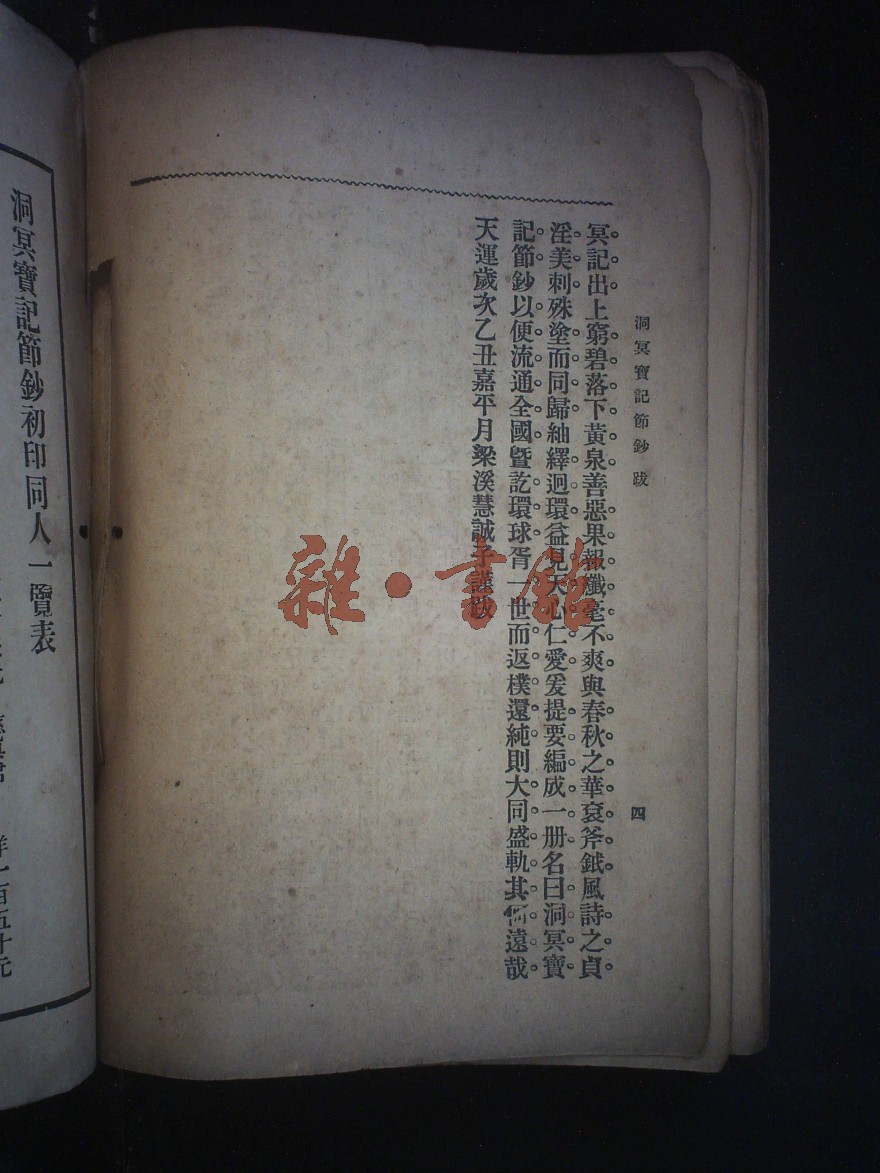 洞冥寶記節鈔 跋
四
冥記出上窮碧落下黃泉善惡果報纖毫不爽與春秋之華袞斧鉞風詩之貞
淫美刺殊塗而同歸紬繹迥環益見天心仁愛爰提要編成一册名曰洞冥寶
記節鈔以便流通全國曁訖環球胥一世而返樸還純則大同盛軌其何遠哉
天運歲次乙丑嘉平月梁溪慧誠子謹跋
雜·書館
洞冥寶記節鈔初印同人一覽表
洋一百五十元